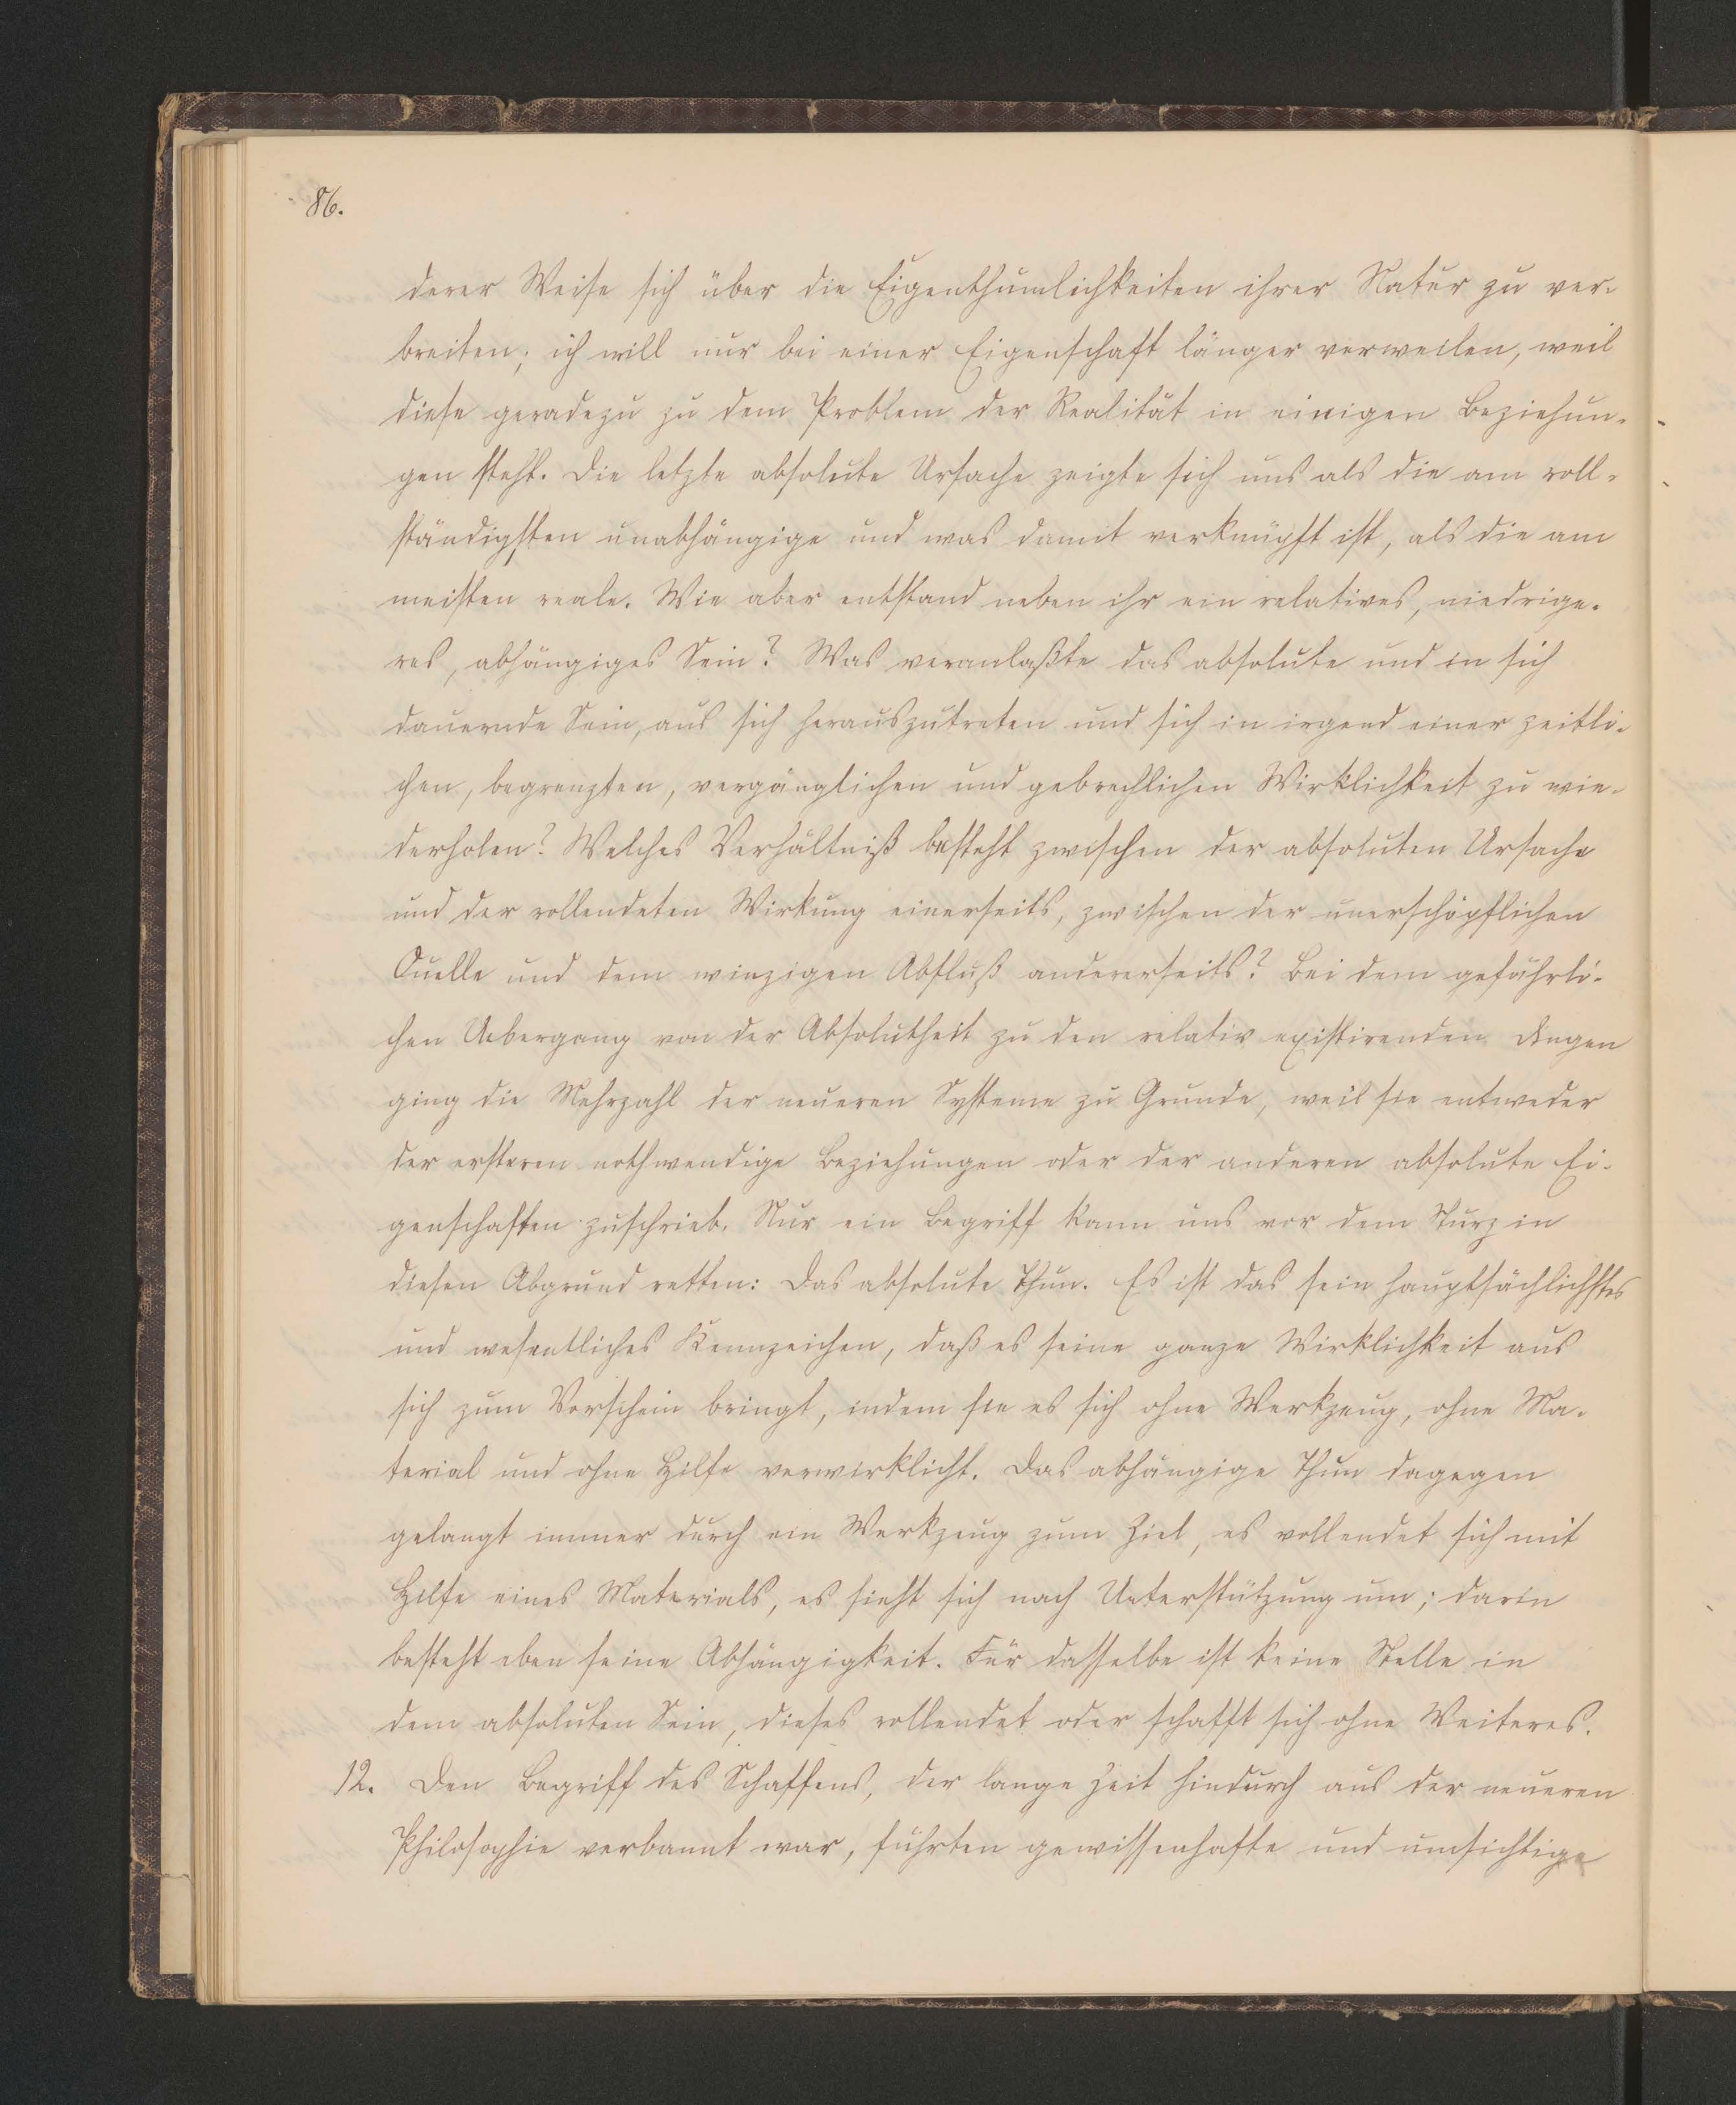 86.
derer Weise sich über die Eigenthümlichkeiten ihrer Natur zu ver-
breiten; ich will nur bei einer Eigenschaft länger verweilen, weil
diese geradezu zu dem Problem der Realität in einigen Beziehun-
gen steht. Die letzte absolute Ursache zeigte sich uns als die am voll-
ständigsten unabhängige und was damit verknüpft ist, als die am
meisten reale. Wie aber entstand neben ihr ein relatives, niedrige-
res, abhängiges Sein? Was veranlaßte das absolute und in sich
dauernde Sein, aus sich herauszutreten und sich in irgend einer zeitli-
chen, begrenzten, vergänglichen und gebrechlichen Wirklichkeit zu wie-
derholen? Welches Verhältniß besteht zwischen der absoluten Ursache
und der vollendeten Wirkung einerseits, zwischen der unerschöpflichen
Quelle und dem winzigen Abfluß andererseits? Bei dem gefährli-
chen Uebergang von der Absolutheit zu den relativ existirenden Dingen
ging die Mehrzahl der neueren Systeme zu Grunde, weil sie entweder
der ersteren nothwendige Beziehungen oder der anderen absolute Ei-
genschaften zuschrieb. Nur ein Begriff kann uns vor dem Sturz in
diesen Abgrund retten: Das absolute Thun. Es ist das sein hauptsächlichstes
und wesentliches Kennzeichen, daß es seine ganze Wirklichkeit aus
sich zum Vorschein bringt, indem sie es sich ohne Werkzeug, ohne Ma-
terial und ohne Hilfe verwirklicht. Das abhängige Thun dagegen
gelangt immer durch ein Werkzeug zum Ziel, es vollendet sich mit
Hilfe eines Materials, es sieht sich nach Unterstützung um; darin
besteht eben seine Abhängigkeit. Für dasselbe ist keine Stelle in
dem absoluten Sein, dieses vollendet oder schafft sich ohne Weiteres.
12. Den Begriff des Schaffens, der lange Zeit hindurch aus der neueren
Philosophie verbannt war, führten gewissenhafte und umsichtige